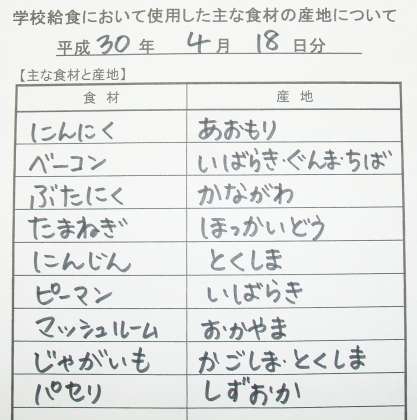 学校給食において使用した主な食材の産地について
平成30年 4月 18日分
【主な食材と産地】
食材 産地
にんにく あおもり
ベーコン いばらき・ぐんま・ちば
ぶたにく かながわ
たまねぎ ほっかいどう
にんじん とくしま
ピーマン いばらき
マッシュルーム おかやま
じゃがいも かごしま・とくしま
パセリ しずおか